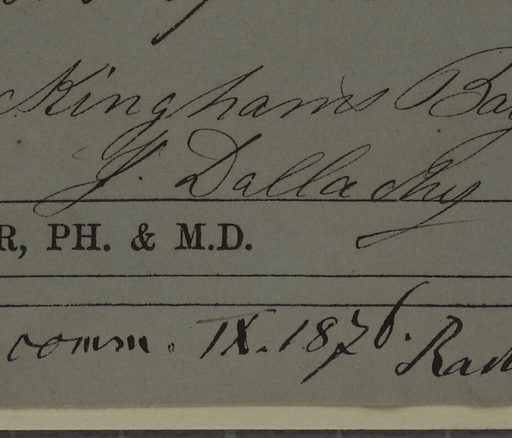 ckingham's Bay
J. Dallachy
R, PH. & M.D.
comm. IX. 1876. Radl